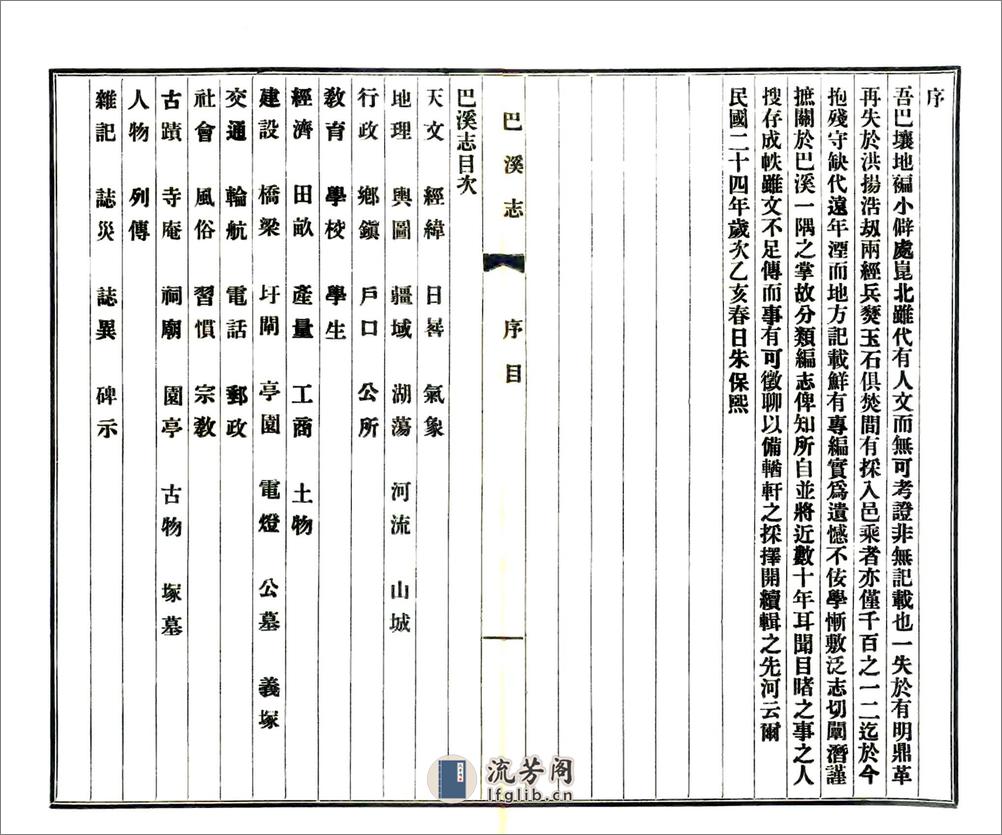 序
吾巴壤地褊小僻處崑北雖代有人文而無可考證非無記載也一失於有明鼎革
再失於洪揚浩刼兩經兵燹玉石俱焚間有採入邑乘者亦僅千百之一二迄於今
抱殘守缺代遠年湮而地方記載鮮有專編實爲遺憾不佞學慚敷泛志切闡潛謹
摭關於巴溪一隅之掌故分類編志俾知所自並將近數十年耳聞目睹之事之人
搜存成帙雖文不足傳而事有可徵聊以備輶軒之採擇開續輯之先河云爾
民國二十四年歲次乙亥春日朱保熙
巴溪志 序目
巴溪志目次
天文 經緯 日晷 氣象
地理 輿圖 疆域 湖蕩 河流 山城
行政 鄉鎮 戶口 公所
敎育 學校 學生
經濟 田畝 產量 工商 土物
建設 橋梁 圩閘 亭園 電燈 公墓 義塚
交通 輪航 電話 郵政
社會 風俗 習慣 宗敎
古蹟 寺庵 祠廟 園亭 古物 塚墓
人物 列傳
雜記 誌災 誌異 碑示
流芳阁
lfglib.cn